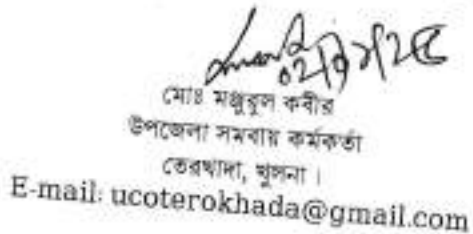 মোঃ মঞ্জুরুল কবীর
উপজেলা সমবায় কর্মকর্তা
তেরখাদা, খুলনা।
E-mail: ucoterokhada@gmail.com